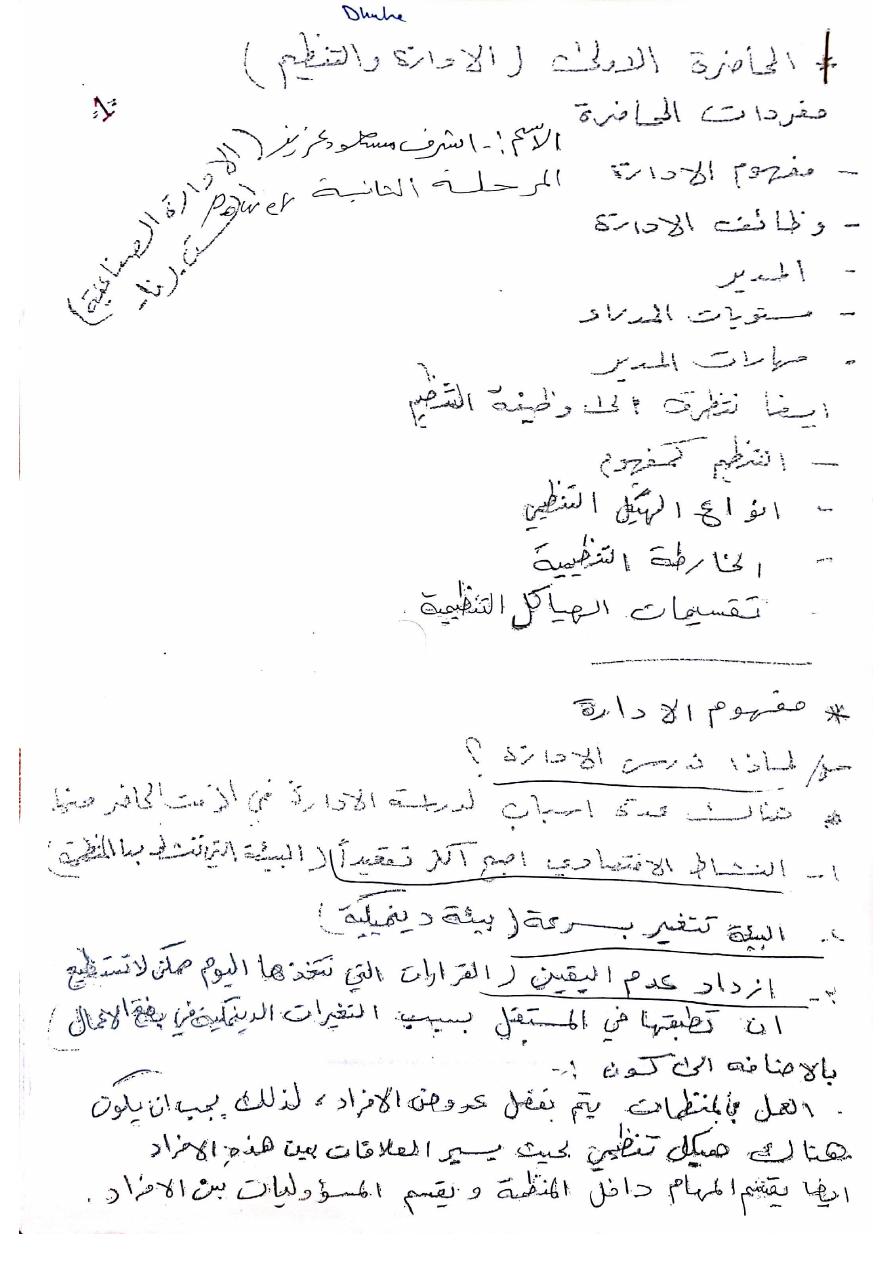 Dhuha
* المحاضرة الاولى ( الادارة والتنظيم )
-1-
مفردات المحاضرة
الاسم :- اشرف عزيز
(الادارة الصناعية)
- مفهوم الادارة
المرحلة الثانية
- وظائف الادارة
- المدير
- مستويات المدراء
- مهارات المدير
ايضا نتطرق الى وظيفة التنظيم
- التنظيم كمفهوم
- انواع الهيكل التنظيمي
- الخارطة التنظيمية
- تقسيمات الهياكل التنظيمية .
* مفهوم الادارة
س/ لماذا ندرس الادارة ؟
* هنالك عدة اسباب لدراسة الادارة في الوقت الحاضر منها
١- النشاط الاقتصادي اصبح اكثر تعقيداً ( البيئة التي تنشط بها المنظمة )
٢- البيئة تتغير بسرعة ( بيئة دينميكية )
٣- ازداد عدم اليقين ( القرارات التي نتخذها اليوم ممكن لا تستطيع
ان تطبقها في المستقبل بسبب التغيرات الدينمكية في الاعمال )
بالاضافه الى كون :-
. العمل بالمنظمات يتم بفضل الافراد ، لذلك يجب ان يكون
هنالك هيكل تنظيمي بحيث يسير العلاقات بين هذه الافراد
ايضا يقسم المهام داخل المنظمة و يقسم المسؤوليات بين الافراد .